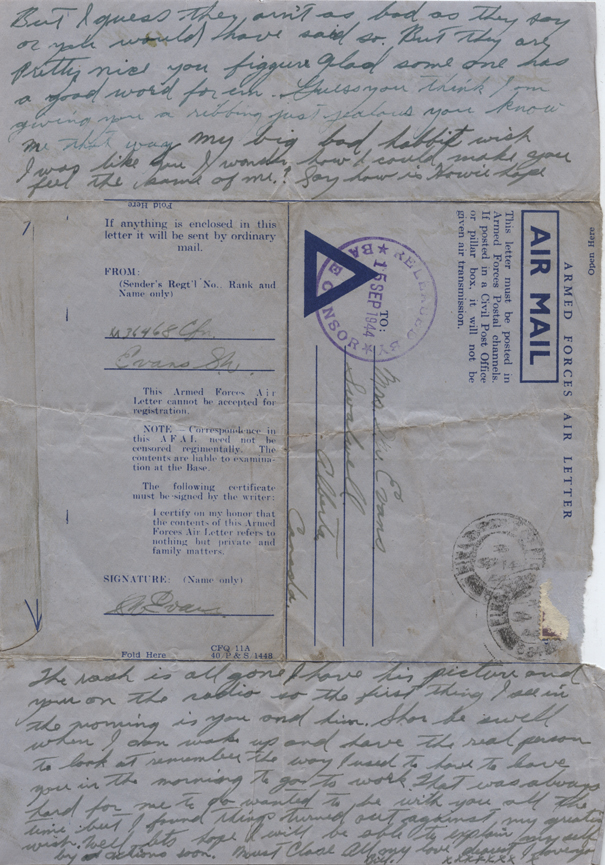 But I guess they ain't as bad as they say
or you would have said so. But they are
Pretty nice you figgure Glad some one has
a good word for em. Guess you think I am
giving you a ribbing just jealous you know
me that way. My big bad habbit wish
I was like you I wonder how I could make you
feel the same of me.? Say how is Howie hope
Fold Here
If anything is enclosed in this
letter it will be sent by ordinary
mail.
FROM:
(Sender's Regt'l No., Rank and
Name only)
M36468 Cfn.
Evans
This Armed Forces Air
Letter cannot be accepted for
registration.
NOTE — Correspondence in
this A.F.A.L. need not be
censored regimentally. The
contents are liable to examina-
tion at the Base.
The following certificate
must be signed by the writer:
I certify on my honor that
the contents of this Armed
Forces Air Letter refers to
nothing but private and
family matters.
SIGNATURE: (Name only)
Evans
Fold Here
CFQ 11A
40 P. & S. 1448
Open Here
ARMED FORCES AIR LETTER
AIR MAIL
This letter must be posted in
Armed Forces Postal channels.
If posted in a Civil Post Office
or pillar box, it will not be
given air transmission.
RELEASED BY
15 SEP 1944
BASE CENSOR
TO:
Mrs Evans
Swalwell
Alberta
Canada.
The rash is all gone I have his picture and
you on the radio so the first thing I see in
the morning is you and him. Shor be swell
when I can wake up and have the real person
to look at remember the way I used to have to leave
you in the morning to go to work That was always
hard for me to go wanted to be with you all the
time but I found things turned out against my greatest
wish. Well lets hope I will be able to explain my self
by actions soon. Must Close All my love dearest forever
xxxxxxx